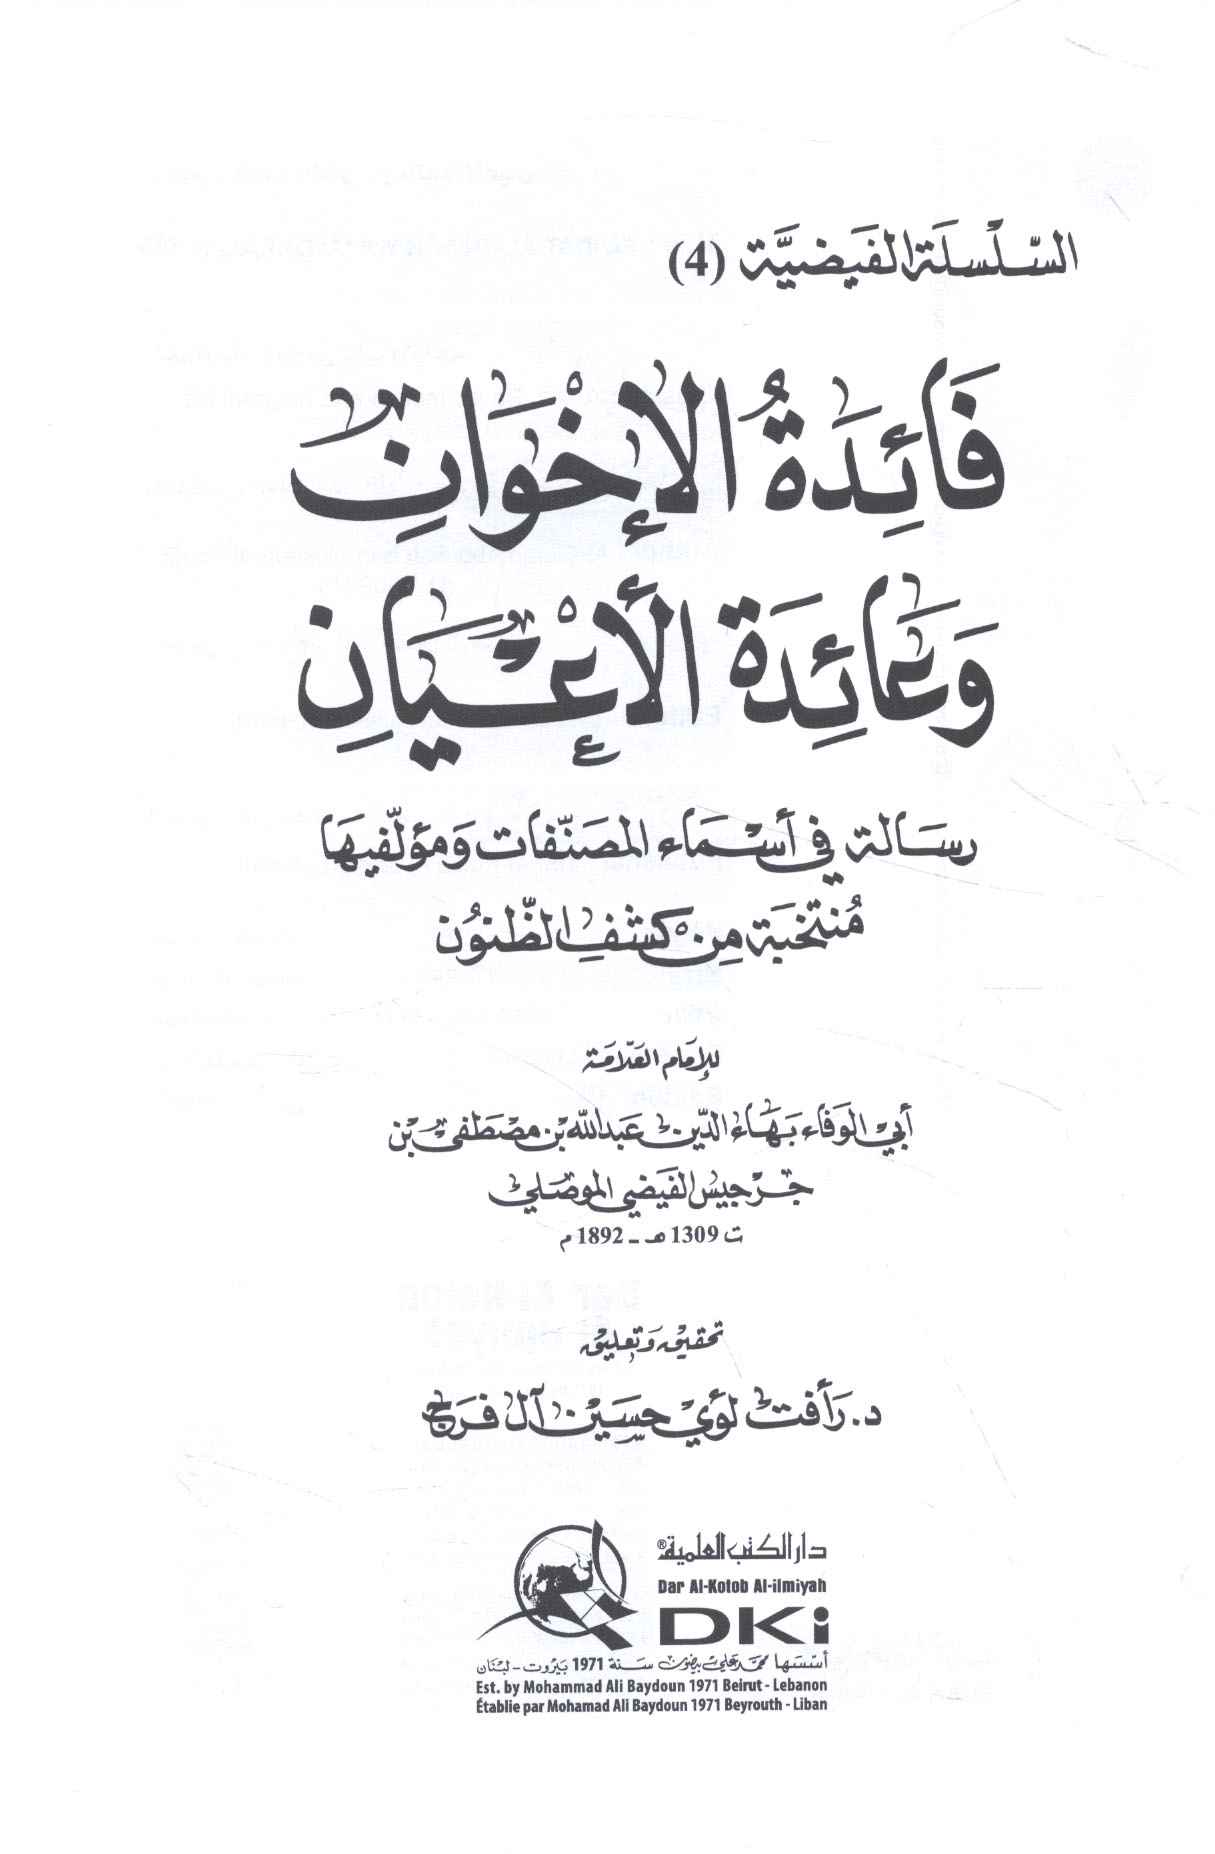 السلسلة الفيضية (4)
فَائِدَةُ الإِخْوَانِ
وَعَائِدَةُ الأَعْيَانِ
رسالة في أسماء المصنّفات ومؤلّفيها
مُنتخبة من كشف الظّنون
للإمام العلّامة
أبي الوفاء بهاء الدّين عبد الله بن مصطفى بن
جرجيس الفيضي الموصلي
ت 1309 هـ - 1892 م
تحقيق وتعليق
د. رأفت لؤي حسين آل فرج
دار الكتب العلمية®
Dar Al-Kotob Al-ilmiyah
DKi
أسسها محمد علي بيضون سنة 1971 بيروت - لبنان
Est. by Mohammad Ali Baydoun 1971 Beirut - Lebanon
Établie par Mohamad Ali Baydoun 1971 Beyrouth - Liban